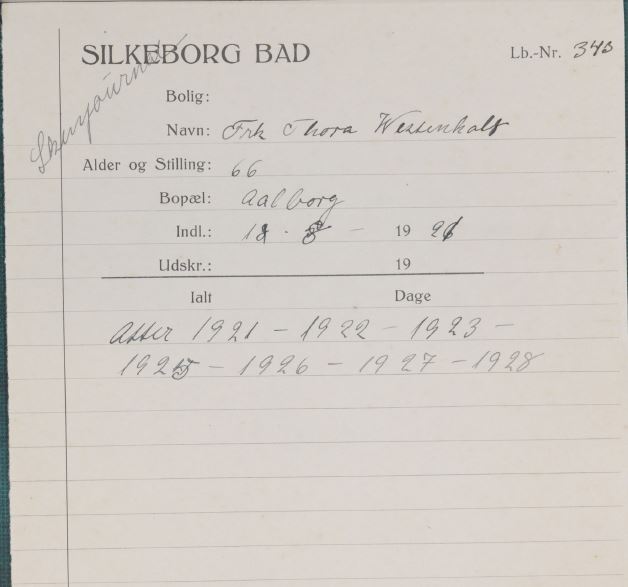 SILKEBORG BAD
Lb.-Nr. 343
Bolig:
Navn: Frk Thora Westenholt
Alder og Stilling: 66
Bopæl: Aalborg
Indl.: 18 - 8 - 1921
Udskr.: 19
Ialt Dage
atter 1921 - 1922 - 1923 -
1925 - 1926 - 1927 - 1928